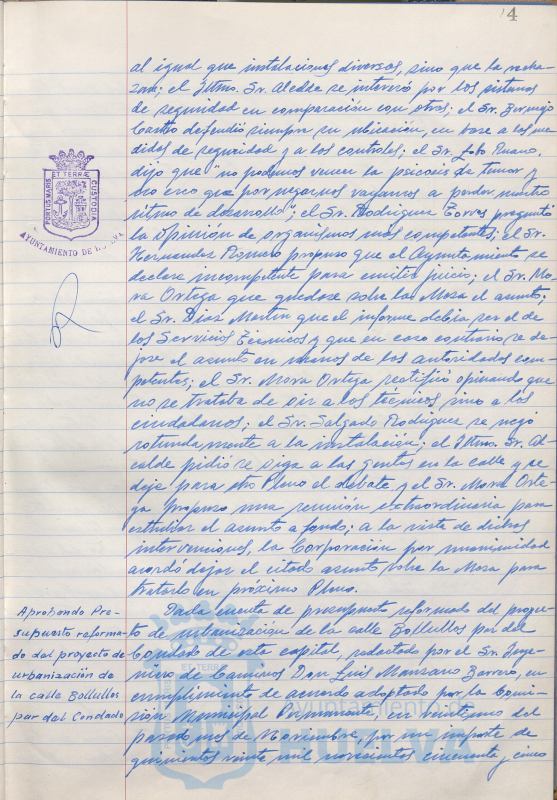 4
al igual que instalaciones diversas, sino que la recha-
zara; el Iltmo. Sr. Alcalde se interesó por los sistemas
de seguridad en comparación con otros; el Sr. Bermejo
Castro defendió siempre su ubicación, en base a las me-
didas de seguridad y a los controles; el Sr. Soto Puano,
dijo que "no podemos vencer la psicosis de temor y
no creo que por negarnos vayamos a perder nuestro
ritmo de desarrollo"; el Sr. Rodríguez Torres preguntó
la opinión de organismos más competentes; el Sr.
Hernández Romero propuso que el Ayuntamiento se
declare incompetente para emitir juicio; el Sr. Mo-
ra Ortega que quedase sobre la Mesa el asunto;
el Sr. Díaz Martín que el informe debía ser el de
los Servicios Técnicos y que en caso contrario se de-
jase el asunto en manos de las autoridades com-
petentes; el Sr. Mora Ortega rectificó opinando que
no se trataba de oir a los técnicos sino a los
ciudadanos; el Sr. Salgado Rodríguez se negó
rotundamente a la instalación; el Iltmo. Sr. Al-
calde pidió se oiga a las gentes en la calle y se
deje para otro Pleno el debate y el Sr. Mora Orte-
ga propuso una reunión extraordinaria para
estudiar el asunto a fondo; a la vista de dichas
intervenciones, la Corporación por unanimidad
acordó dejar el citado asunto sobre la Mesa para
tratarlo en próximo Pleno.
Aprobando Pre-
supuesto reforma-
do del proyecto de
urbanización de
la calle Bollullos
par del Condado
Dada cuenta de presupuesto reformado del proyec-
to de urbanización de la calle Bollullos par del
Condado de esta capital, redactado por el Sr. Inge-
niero de Caminos Don Luis Manzano Barrero, en
cumplimiento de acuerdo adoptado por la Comi-
sión Municipal Permanente, en veintiuno del
pasado mes de Noviembre, por un importe de
quinientas veinte mil novecientas cincuenta y cinco
PORTUS MARIS ET TERRÆ CUSTODIA
AYUNTAMIENTO DE HUELVA
ET TERR
Ayuntamiento de
HUELVA